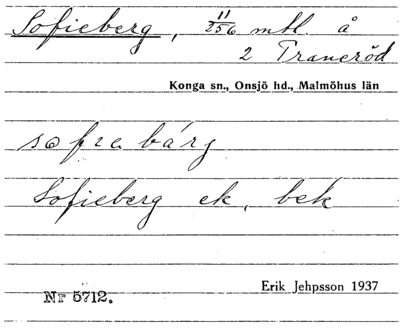 Sofieberg, 11/256 mtl. å
2 Traneröd
Konga sn., Onsjö hd., Malmöhus län
sofɩabárg
Sofieberg ek, bek
Erik Jehpsson 1937
Nr 5712.